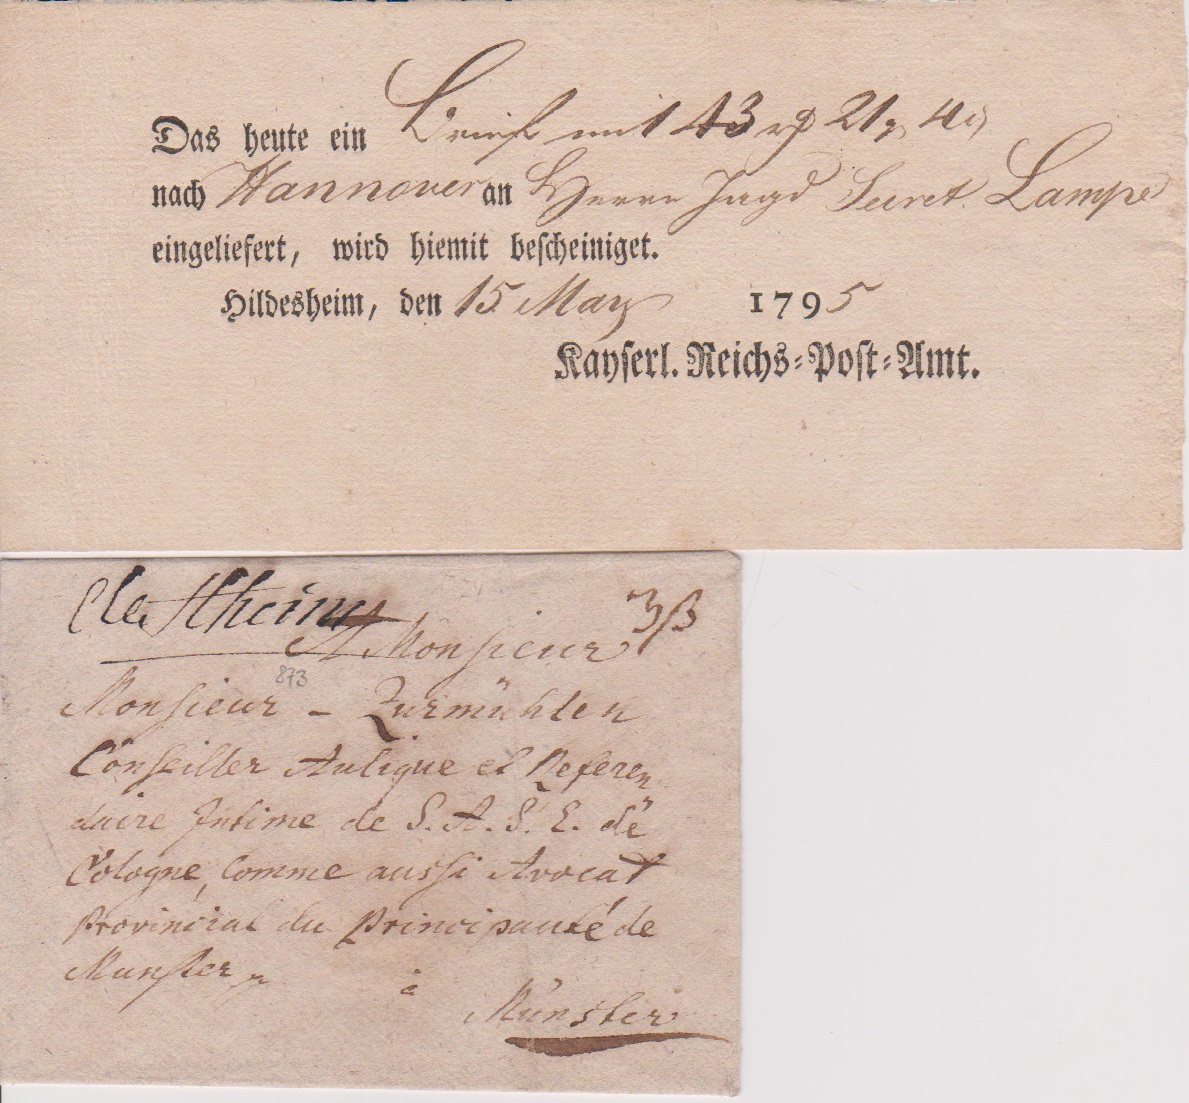 Das heute ein Brief mit 43 rt 21 g 4 d
nach Hannover an Herrn Jagd Secret. Lampe
eingeliefert, wird hiemit bescheiniget.
Hildesheim, den 15 May 1795
Kayserl. Reichs-Post-Amt.
3ß
A Monsieur
873
Monsieur - Zurmühlen
Conseiller Aulique et Referen
daire Intime de S. A. S. E. de
Cologne, Comme aussi Avocat
Provincial du Principauté de
Munster
à
Münster